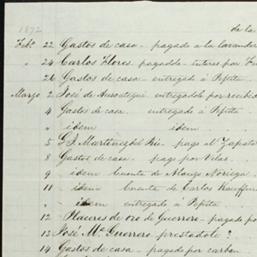 de la
1872
Febo. 22 Gastos de casa - pagado a la lavandera
" 24 Carlos Flores - pagadole interes por
26 Gastos de casa - entregado á Pepita
Marzo 2 José de Ansoategui entregadole por recibo
4 Gastos de casa entregado á Pepita
" idem idem
5 G. Martinez del Rio - pago al Zapato
8 Gastos de casa - pago por Velas
9 idem Cuenta de Alonzo Noriega
11 idem Cuenta de Carlos Kauffm
" idem entregado á Pepita
12 Haceres de oro de Guerrero - pagado po
13 José Ma. Guerrero prestadole
14 Gastos de casa - pagado por carbon